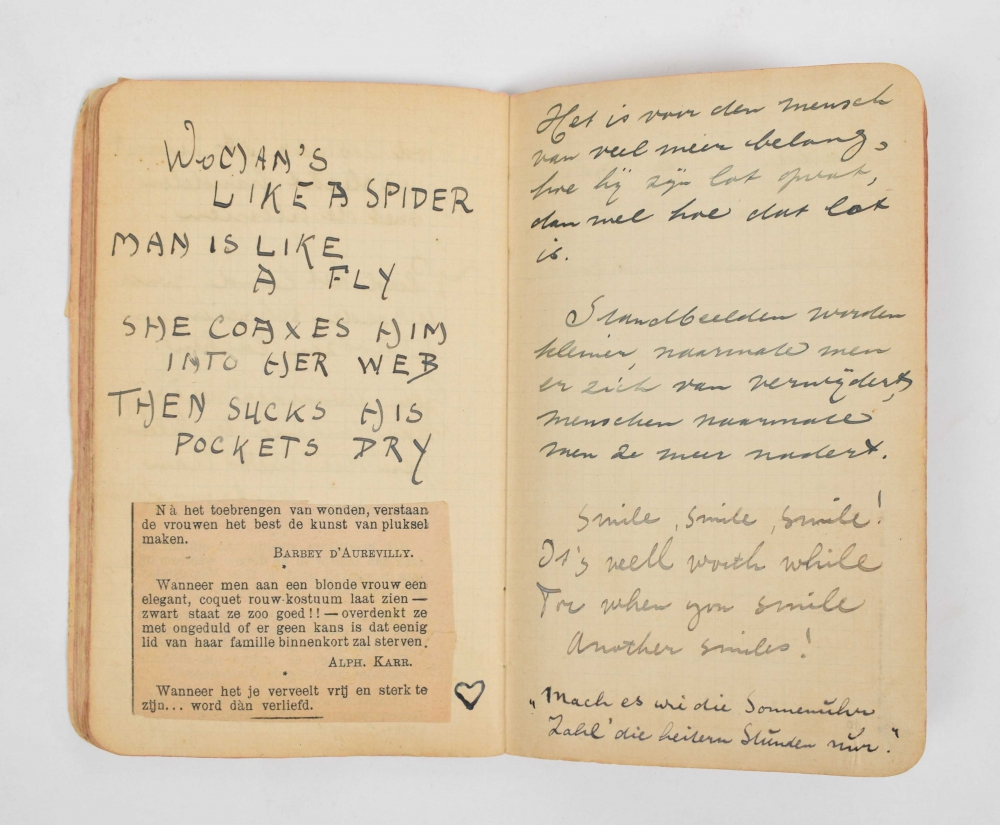 WOMAN'S
LIKE A SPIDER
MAN IS LIKE
A FLY
SHE COAXES HIM
INTO HER WEB
THEN SUCKS HIS
POCKETS DRY
Nà het toebrengen van wonden, verstaan
de vrouwen het best de kunst van pluksel
maken.
BARBEY D'AUREVILLY.
Wanneer men aan een blonde vrouw een
elegant, coquet rouw-kostuum laat zien —
zwart staat ze zoo goed!! — overdenkt ze
met ongeduld of er geen kans is dat eenig
lid van haar familie binnenkort zal sterven.
ALPH. KARR.
Wanneer het je verveelt vrij en sterk te
zijn... word dàn verliefd.
Het is voor den mensch
van veel meer belang,
hoe hij zijn lot opvat,
dan wel hoe dat lot
is.
Standbeelden worden
kleiner, naarmate men
er zich van verwijdert,
menschen naarmate
men ze meer nadert.
Smile, smile, smile!
It's well worth while
For when you smile
Another smiles!
„Mach es wie die Sonnenuhr
Zähl' die heitern Stunden nur."